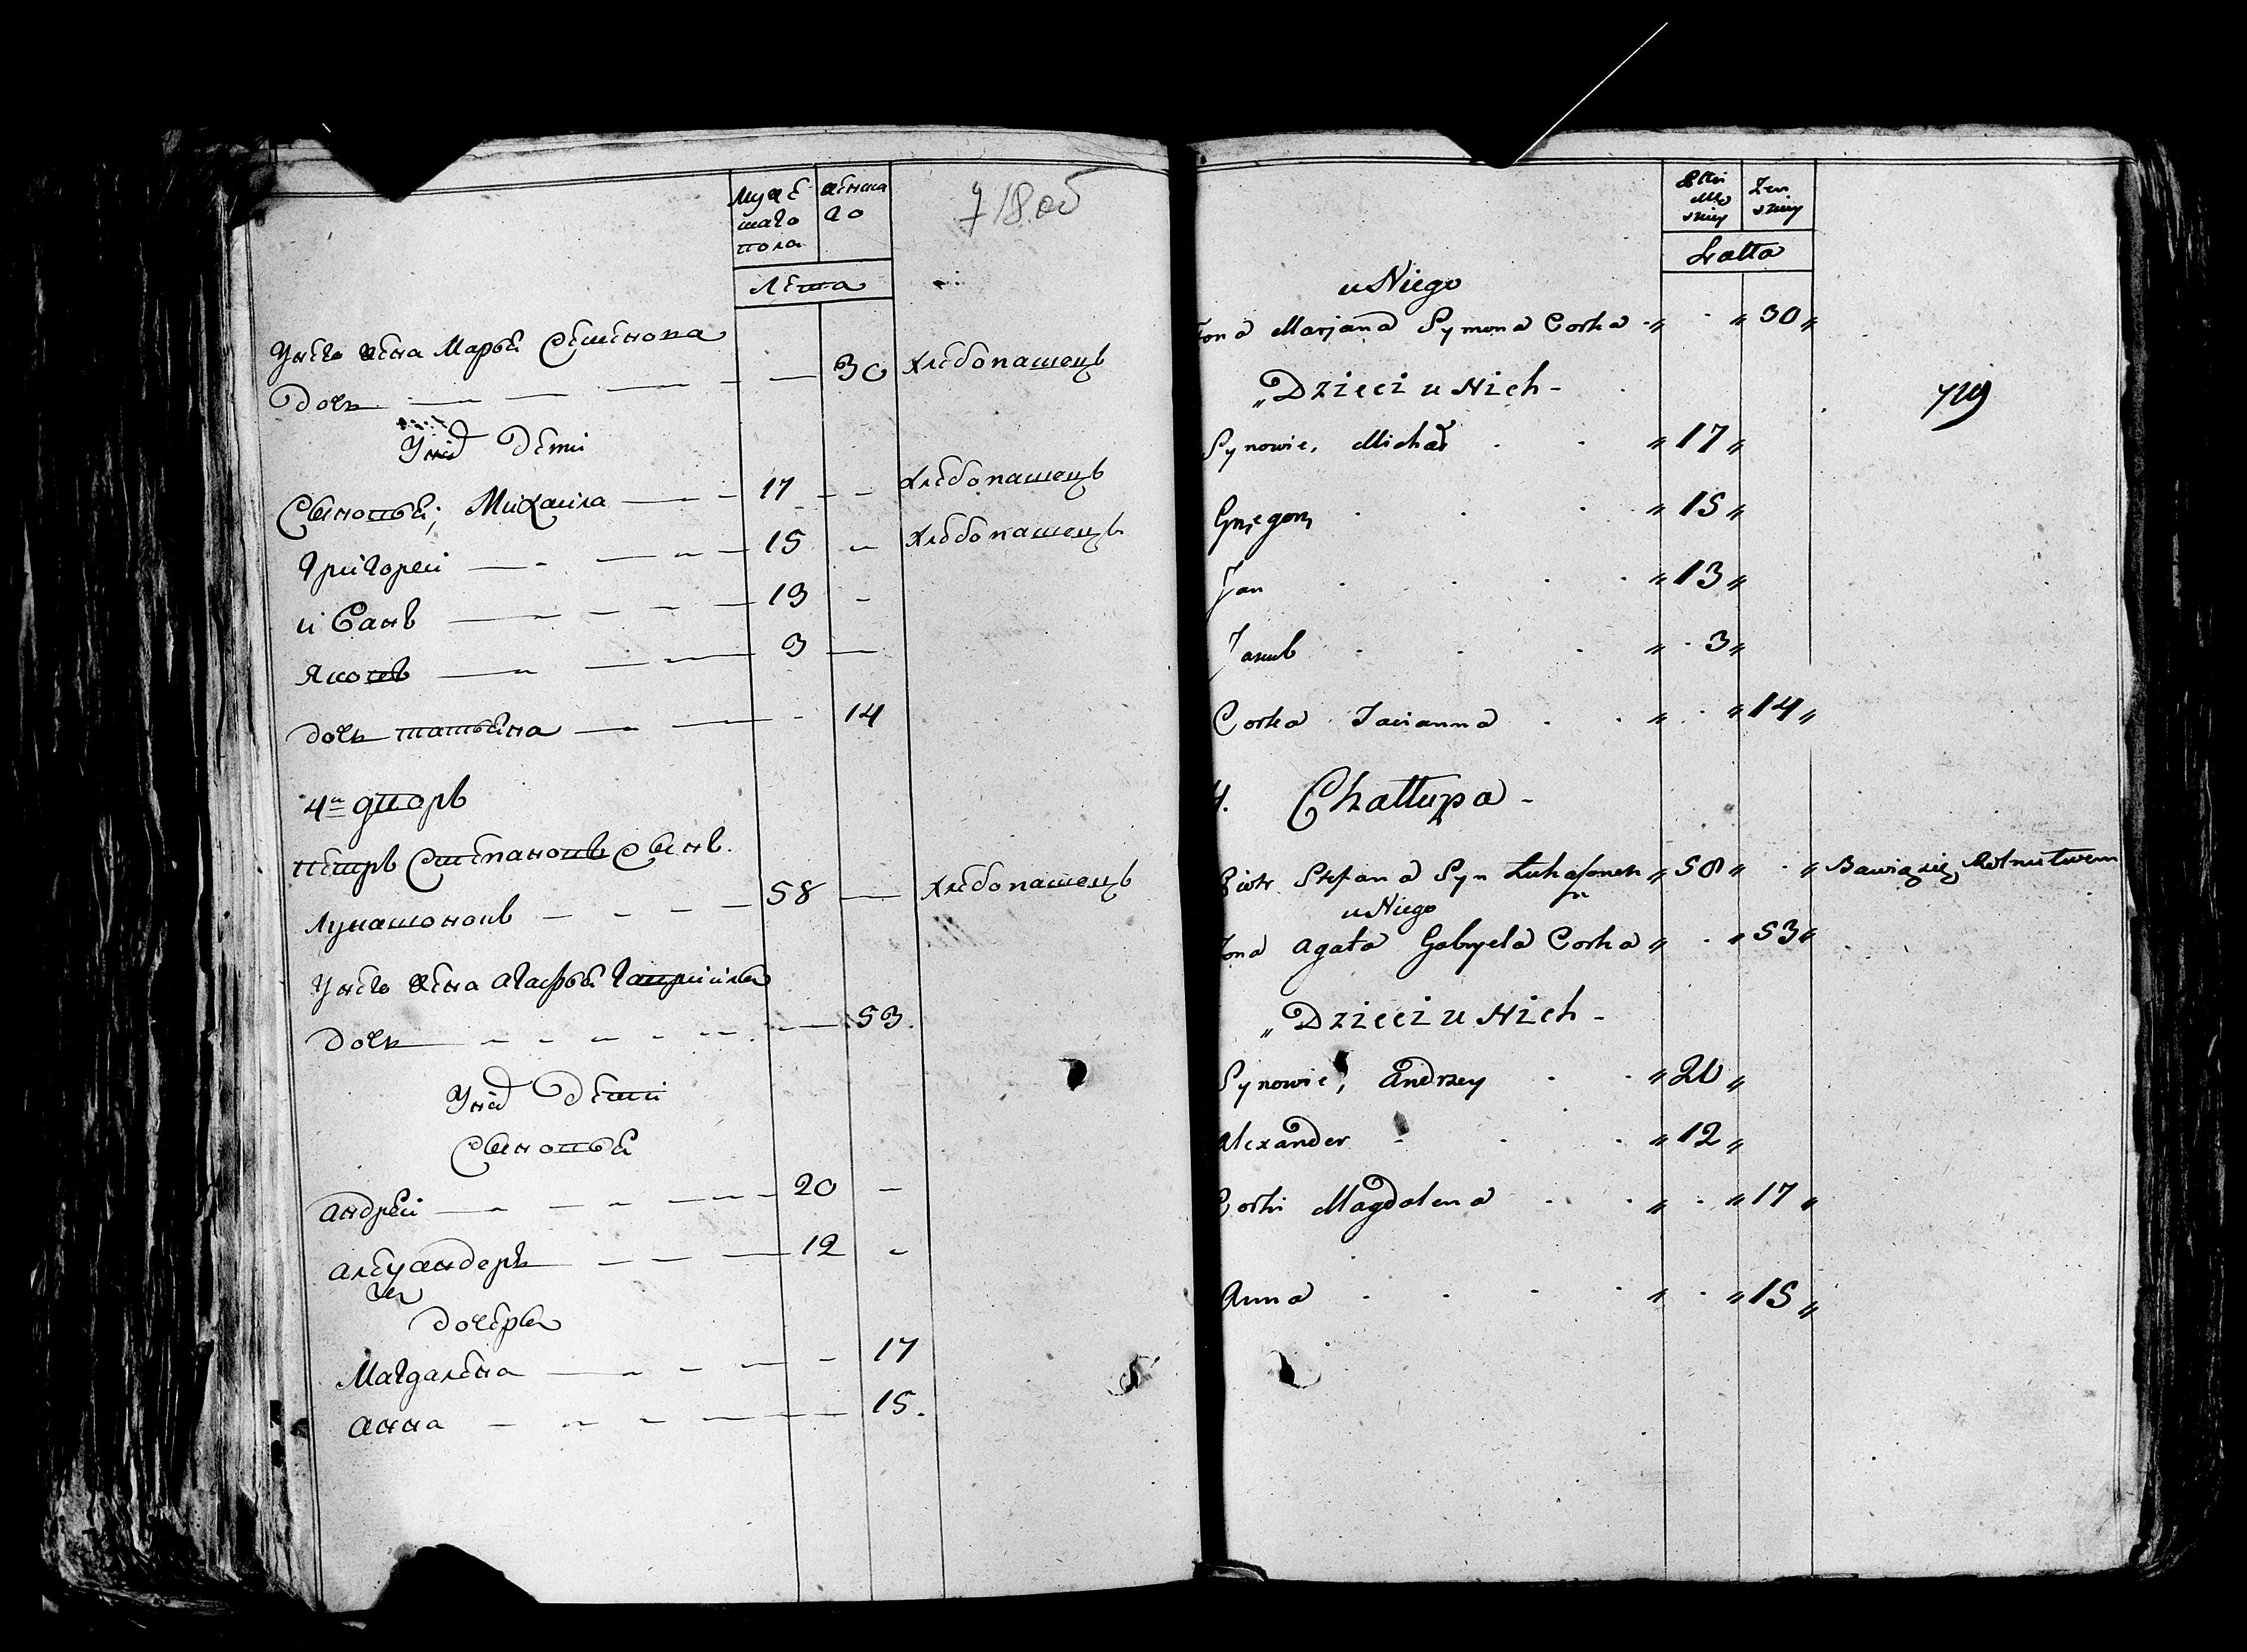 Муже
скаго
пола
женска
го
718 об
Лета
Унего жена Марья Семенова
дочь 30 хлебопашецъ
Унид Дети
Сыновья, Михаила 17 хлебопашецъ
Григорей 15 хлебопашецъ
иванъ 13
Яковъ 3
дочь татьяна 14
4й дворъ
петръ Степановъ Сынъ
Лукашоновъ 58 хлебопашецъ
Унего жена агафья гаврiила
дочь 53.
Унид Дети
Сыновья
андрей 20
алеѯандеръ 12
дочери
Магдалена 17
анна 15.
Męz
szczy
Zen
szczy
Latta
u Niego
Zona Marjana Symona Corka " " 30 "
719
" Dzieci u Nich -
Synowie, Michał " 17 "
Grzegorz " 15 "
Jan " 13 "
Jakub " 3 "
Corka Tacianna " " 14 "
4. Chattupa -
Piotr Stefana Syn Łukaszonek " 58 " " Bawiąsię Rolnictwem
u Niego
Zona Agata Gabryela Corka " " 53 "
" Dzieci u Nich -
Synowie, Andrzey " 20 "
Alexander " 12 "
Corki Magdalena " " 17 "
Anna " " 15 "